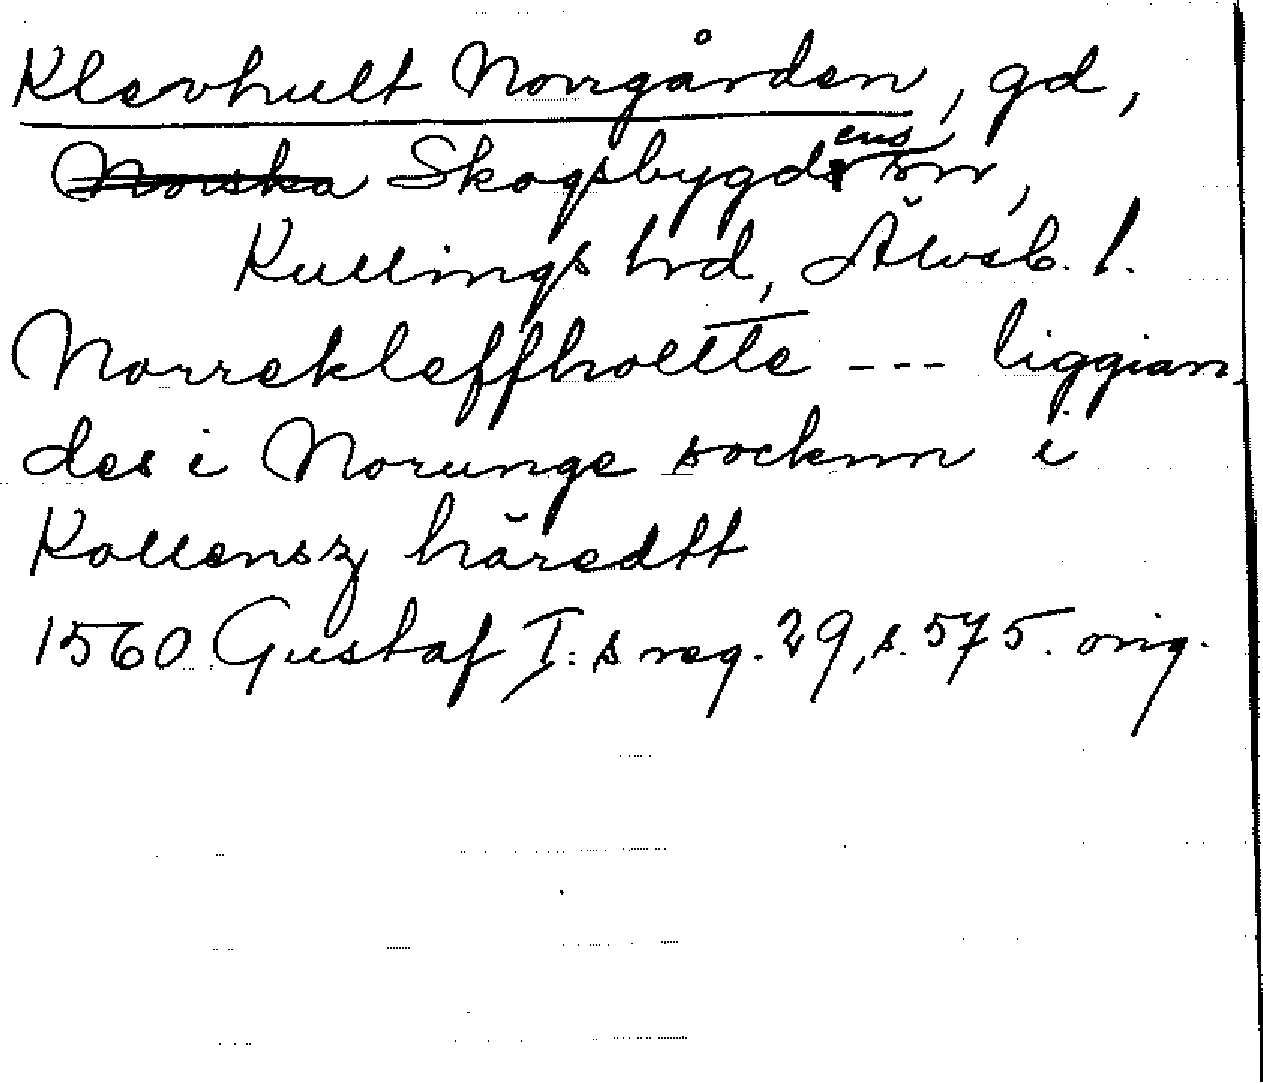 Klevhult Norrgården, gd,
Norska Skogsbygdens sn,
Kullings hd, Älvsb. l.
Norrekleffhoelte --- liggian-
des i Norunge socknn i
Kollensz häredtt
1560 Gustaf I:s reg. 29, s. 575. orig.